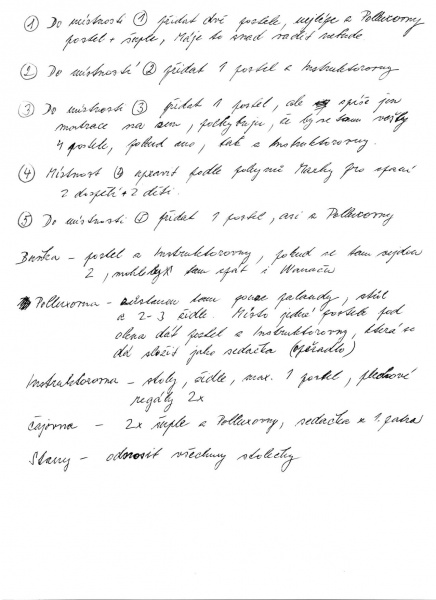 ① Do místnosti ① přidat dvě postele, nejlépe z Polluxovny
postel + šuple, Máje to snad vadit nebude
② Do místnosti ② přidat 1 postel z Instruktorovny
③ Do místnosti ③ přidat 1 postel, ale spíše jen
matrace na zem, pochybuju, že by se tam vešly
4 postele, pokud ano, tak z Instruktorovny.
④ Místnost ④ upravit podle pokynů Macky pro spaní
2 dospělí + 2 děti.
⑤ Do místnosti ⑤ přidat 1 postel, asi z Polluxovny
Buňka – postel z Instruktorovny, pokud se tam vejdou
2, tam spát i
Polluxovna – zůstanou tam pouze palandy, stůl
a 2-3 židle. Místo jedné postele pod
okna dát postel z Instruktorovny, která se
dá složit jako sedačka (opěradlo)
Instruktorovna – stoly, židle, max. 1 postel, plechové
regály 2x
Čajovna – 2x šuple z Polluxovny, sedačka z 1. patra
Stany – odnosit všechny stolečky